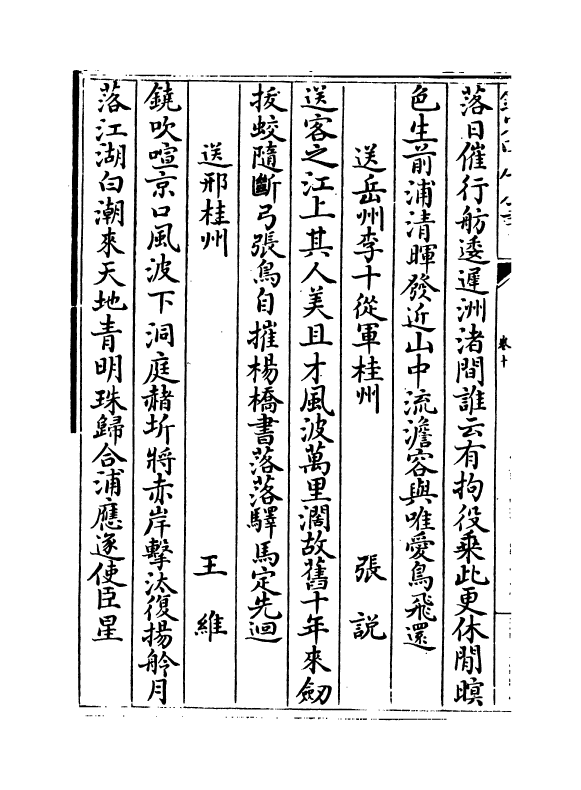 卷十
落日催行舫逶遲洲渚間誰云有拘役乘此更休閒暝
色生前浦清暉發近山中流澹容與唯愛鳥飛還
送岳州李十從軍桂州 張説
送客之江上其人美且才風波萬里濶故舊十年來劒
拔蛟隨斷弓張鳥自摧楊橋書落落驛馬定先迴
送邢桂州 王維
鐃吹喧京口風波下洞庭赭圻將赤岸擊汰復揚舲月
落江湖白潮來天地青明珠歸合浦應逐使臣星